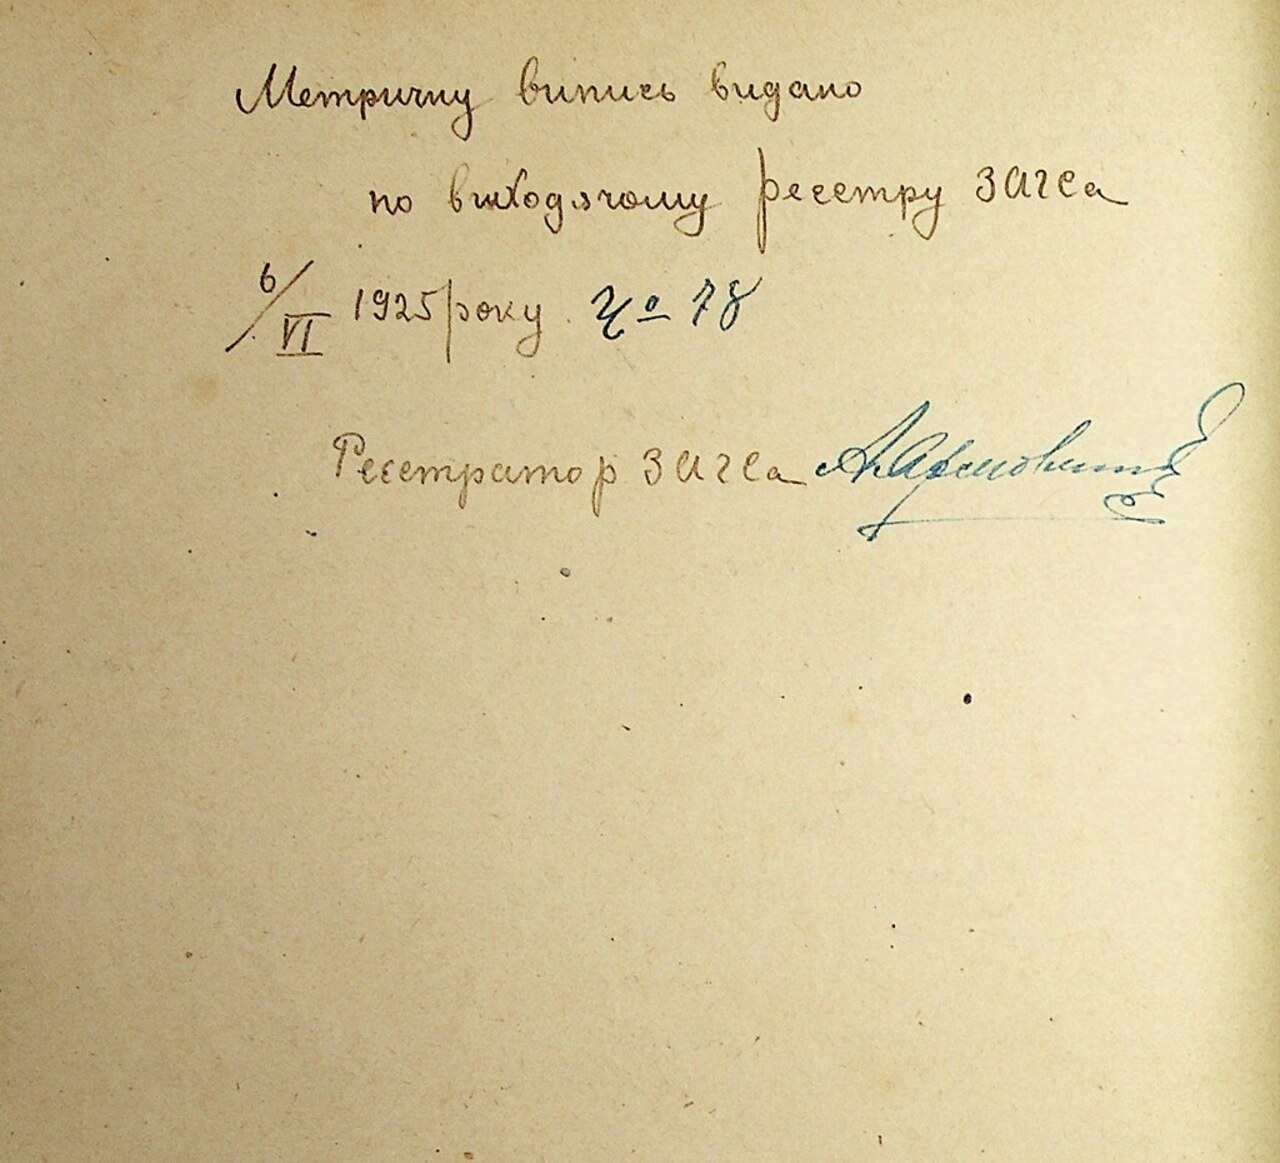 Метричну випись видано
по виходячому реєстру ЗАГСа
6/VI 1925 року № 78
Реєстратор ЗАГСа